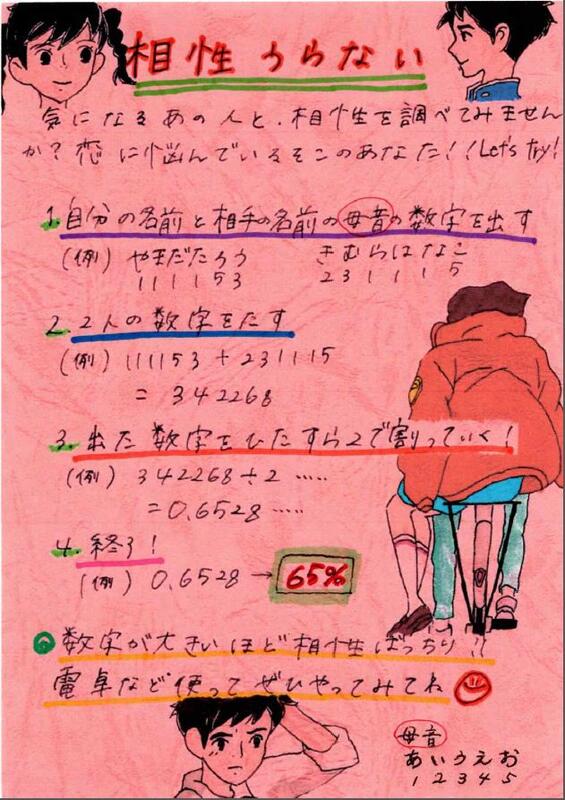 相性うらない
気になるあの人と、相性を調べてみません
か？恋に悩んでいるそこのあなた！！Let's try!
1.自分の名前と相手の名前の母音の数字を出す
(例) やまだたろう きむらはなこ
111153 231115
2.2人の数字をたす
(例) 111153+231115
=342268
3.出た数字をひたすら2で割っていく！
(例) 342268÷2‥‥‥
=0.6528‥‥‥
4.終了！
(例) 0.6528→65%
数字が大きいほど相性ばっちり!!
電卓など使ってぜひやってみてね
母音
あいうえお
12345